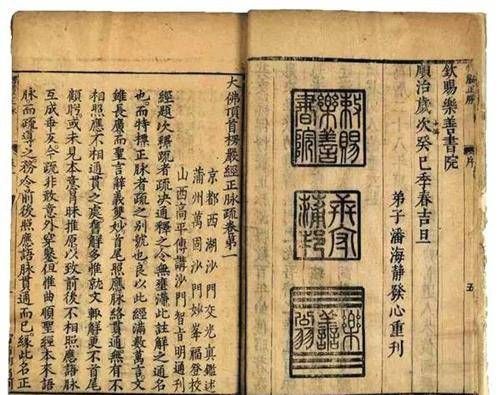 欽賜樂善書院
順治歲次癸巳季春吉旦
弟子潘海靜發心重刊
五
敕賜樂善書院
樂善
大佛頂首楞嚴經正脉疏卷第一
京都西湖沙門交光真鑑述
蒲州萬固沙門妙峯福登校
山西高平傳講沙門智眞明通刊
經題次釋疏者疏決通釋之令無壅滯此註解之通名
也而特標正脉者疏之別號也良以此經瀰數萬言文
雖長廣而聖言辭義雙妙首尾照應脉絡貫通無有不
相照應不相通貫之處奮解多惟就文輒解更不首尾
顧盻或未見本意肯脉推原以致前後不相照應語脉
互成乖反今疏非敢意外更張但惟曲順聖經本來語
脉而疏導之務令前後照應語脉貫通而已緣此名正